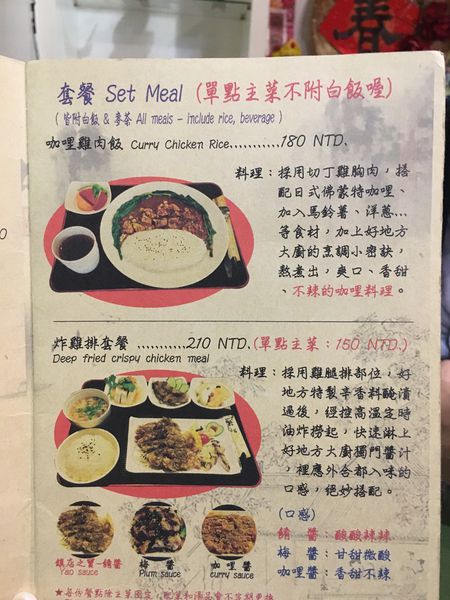 春
套餐 Set Meal (單點主菜不附白飯喔)
(皆附白飯 & 麥茶 All meals - include rice, beverage)
咖哩雞肉飯 Curry Chicken Rice...........180 NTD.
料理：採用切丁雞胸肉，搭
配日式佛蒙特咖哩、
加入馬鈴薯、洋蔥...
等食材，加上好地方
大廚的烹調小密訣，
熬煮出，爽口、香甜
、不辣的咖哩料理。
炸雞排套餐 ...........210 NTD.(單點主菜：150 NTD.)
Deep fried crispy chicken meal
料理：採用雞腿排部位，好
地方特製辛香料醃漬
過後，經控高溫定時
油炸撈起，快速淋上
好地方大廚獨門醬汁
，裡應外合都入味的
口感，絕妙搭配。
(口感)
鎮店之寶-𩸙醬
Yao sauce
梅 醬
Plum sauce
咖哩醬
curry sauce
醬：酸酸辣辣
梅 醬：甘甜微酸
咖哩醬：香甜不辣